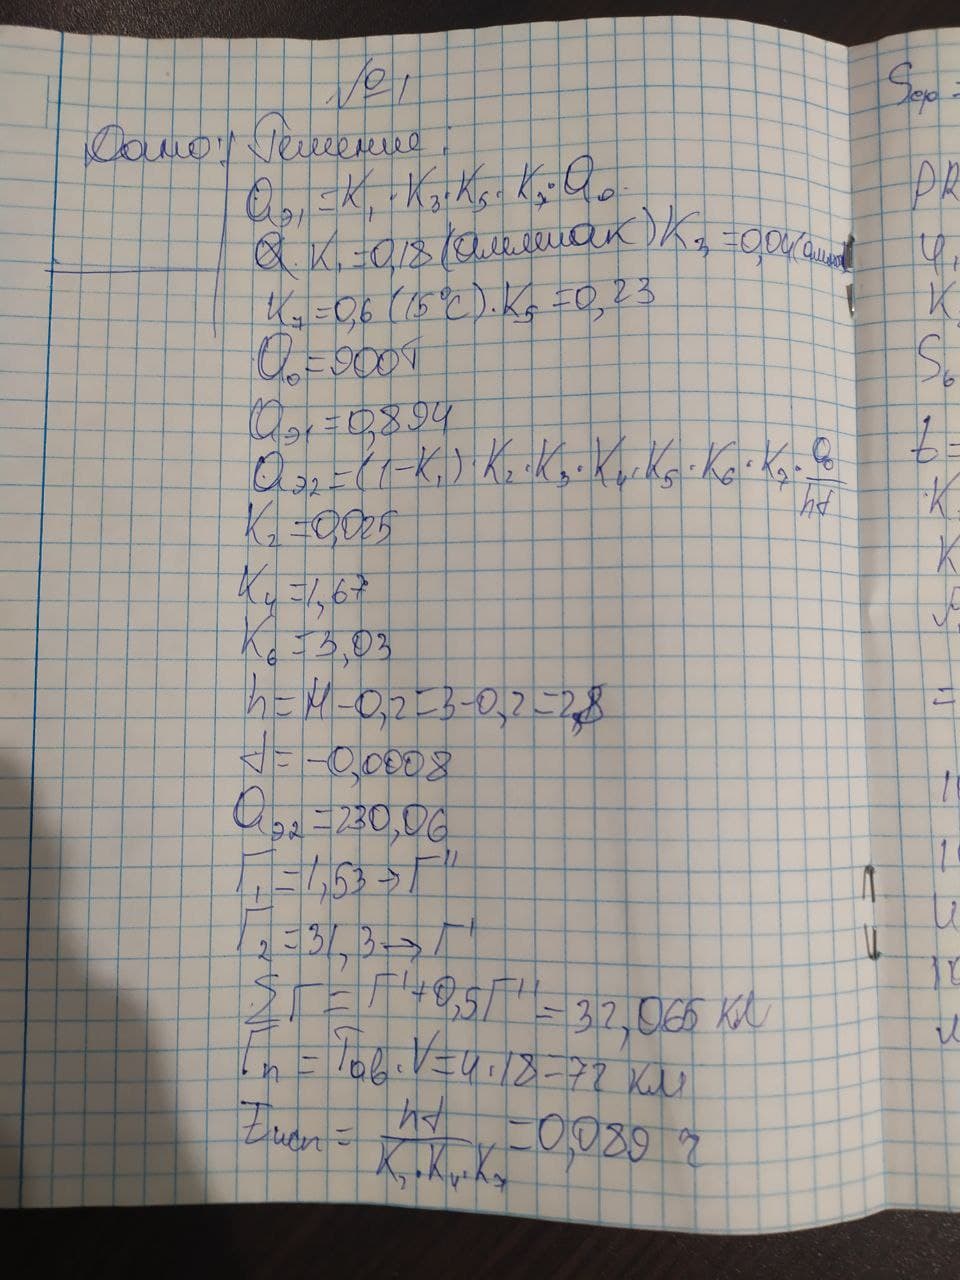 №1
Дано: Решение:
Qэ1 = K1 · K3 · K5 · K7 · Q0.
Q. K1 = 0,18 (аммиак) K3 = 0,04 (аммиак)
K7 = 0,6 (15°C). K5 = 0,23
Q0 = 900т
Qэ1 = 0,894
Qэ2 = (1-K1) · K2 · K3 · K4 · K5 · K6 · K7 · Q0/hd
K2 = 0,025
K4 = 1,67
K6 = 3,03
h = H - 0,2 = 3 - 0,2 = 2,8
d = -0,0008
Qэ2 = 230,06
Г1 = 1,53 → Г''
Г2 = 31,3 → Г'
∑Г = Г' + 0,5Г'' = 32,065 км
Гп = Tав · V = 4 · 18 = 72 км
Tисп = hd/K2 · K4 · K7 = 0,089 ч
Sср =
K
S6
t =
K
K
=